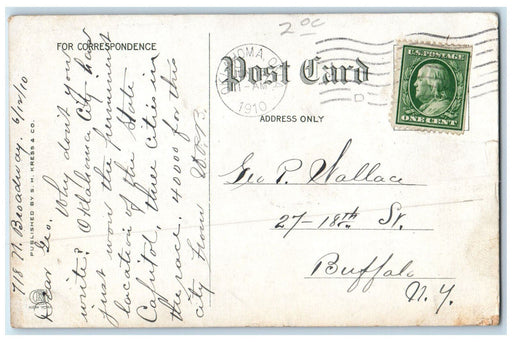 2 oc
FOR CORRESPONDENCE
Post Card
ADDRESS ONLY
OKLAHOMA
1910
U.S. POSTAGE
ONE CENT
PUBLISHED BY S. H. KRESS & CO.
718 N. Broadway. 6/12/10
Dear Geo. Why don't you
write? Oklahoma City has
just won the permanent
location of the State
Capitol, three cities in
the race. 40000 for this
city from
Geo P. Wallace
27-18th St.
Buffalo
N.Y.